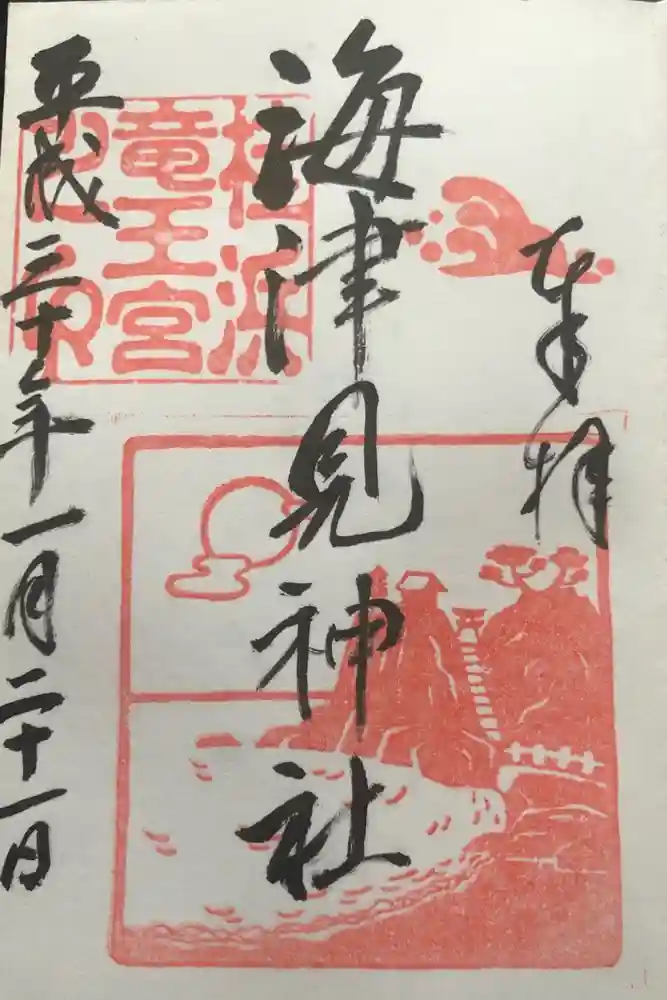 奉拝
海津見神社
桂浜
竜王宮
平成三十年一月二十一日